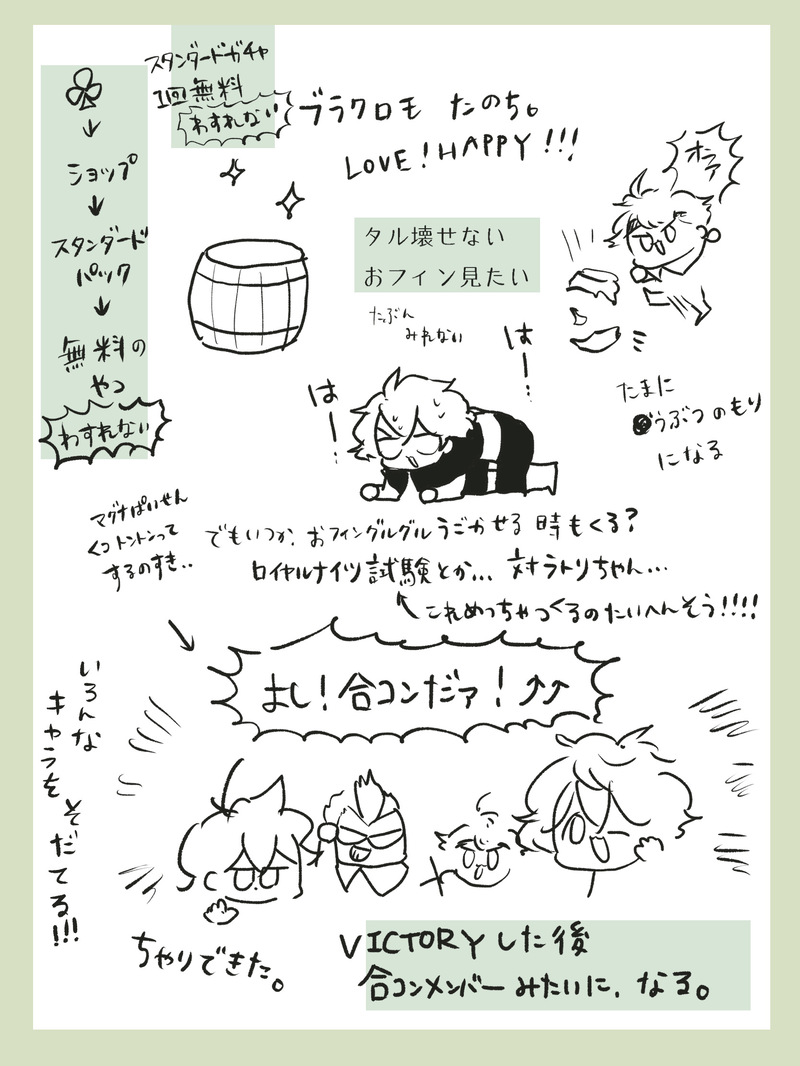 スタンダードガチャ
1回無料
わすれない
ショップ
スタンダード
パック
無料の
やつ
わすれない
ブラクロモ たのち。
LOVE!HAPPY!!!
タル壊せない
おフィン見たい
たぶん
みれない
はー…
はー…
オラァ
たまに
どうぶつのもり
になる
マグナぱいせん
くつトントンって
するのすき..
でもいつか、おフィングルグルうごかせる時もくる?
ロイヤルナイツ試験とか... 対ラトリちゃん...
これめっちゃつくるのたいへんそう!!!!
よし!合コンだァ!⤴⤴
いろんな
キャラを
そだてる!!!
ちゃりできた。
VICTORYした後
合コンメンバーみたいに、なる。